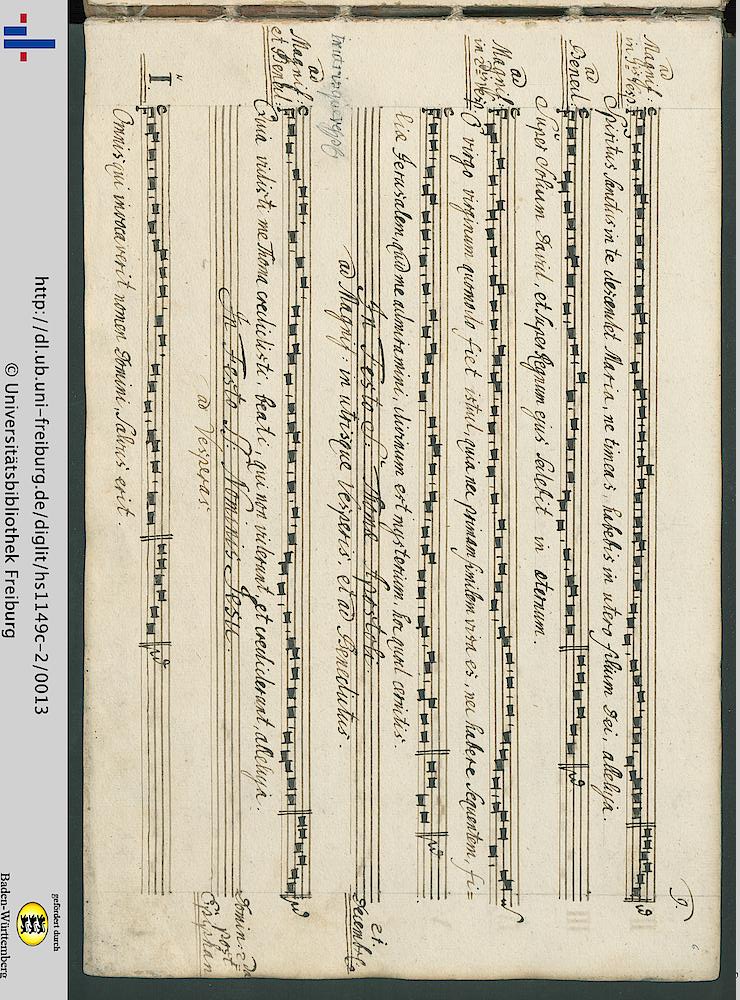 9
ad Magnif: in 1is Vesp:
Spiritus Sanctus in te descendet Maria, ne timeas, habebis in utero filium Dei, alleluja.
ad Bened:
Super Solium David, et super Regnum ejus sedebit in æternum.
ad Magnif: in 2is Vesp:
O virgo virginum quomodo fiet istud, quia nec primam similem visa es, nec habere sequentem, fi=
liæ Jerusalem, quid me admiramini, divinum est mysterium, hoc quod cernitis.
In Festo S: Thomæ Apostoli.
21. Decembris
ad Magnif: in utrisque Vesperis, et ad Benedictus.
in utrisque vesperis
ad Magnif: et Bened:
Quia vidisti me Thoma credidisti, beati, qui non viderunt, et crediderunt, alleluja.
In Festo SS: Nominis Jesu.
Domin: 2da post Epiphan
ad Vesperas
I
Omnis qui invocaverit nomen Domini, salvus erit.
http://dl.ub.uni-freiburg.de/diglit/hs1149c-2/0013
© Universitätsbibliothek Freiburg
gefördert durch
Baden-Württemberg